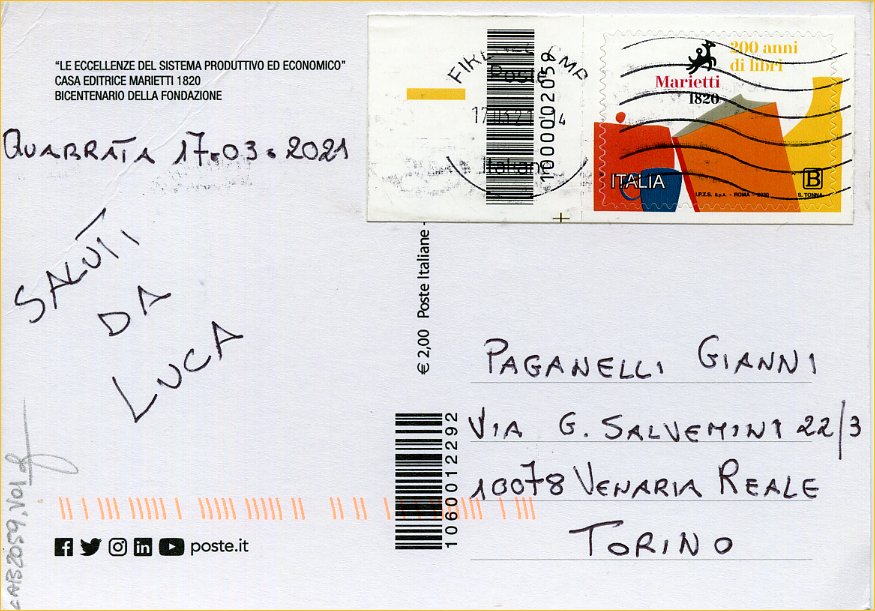 "LE ECCELLENZE DEL SISTEMA PRODUTTIVO ED ECONOMICO"
CASA EDITRICE MARIETTI 1820
BICENTENARIO DELLA FONDAZIONE
QUARRATA 17.03.2021
SALUTI
DA
LUCA
Poste
17.03.21
Italiane
1000002059
200 anni
di libri
Marietti
1820
ITALIA
B
I.P.Z.S. S.p.A. - ROMA - 2020
S. TONNA
€ 2,00 Poste Italiane -
PAGANELLI GIANNI
VIA G. SALVEMINI 22/3
10078 VENARIA REALE
TORINO
10600012292
poste.it